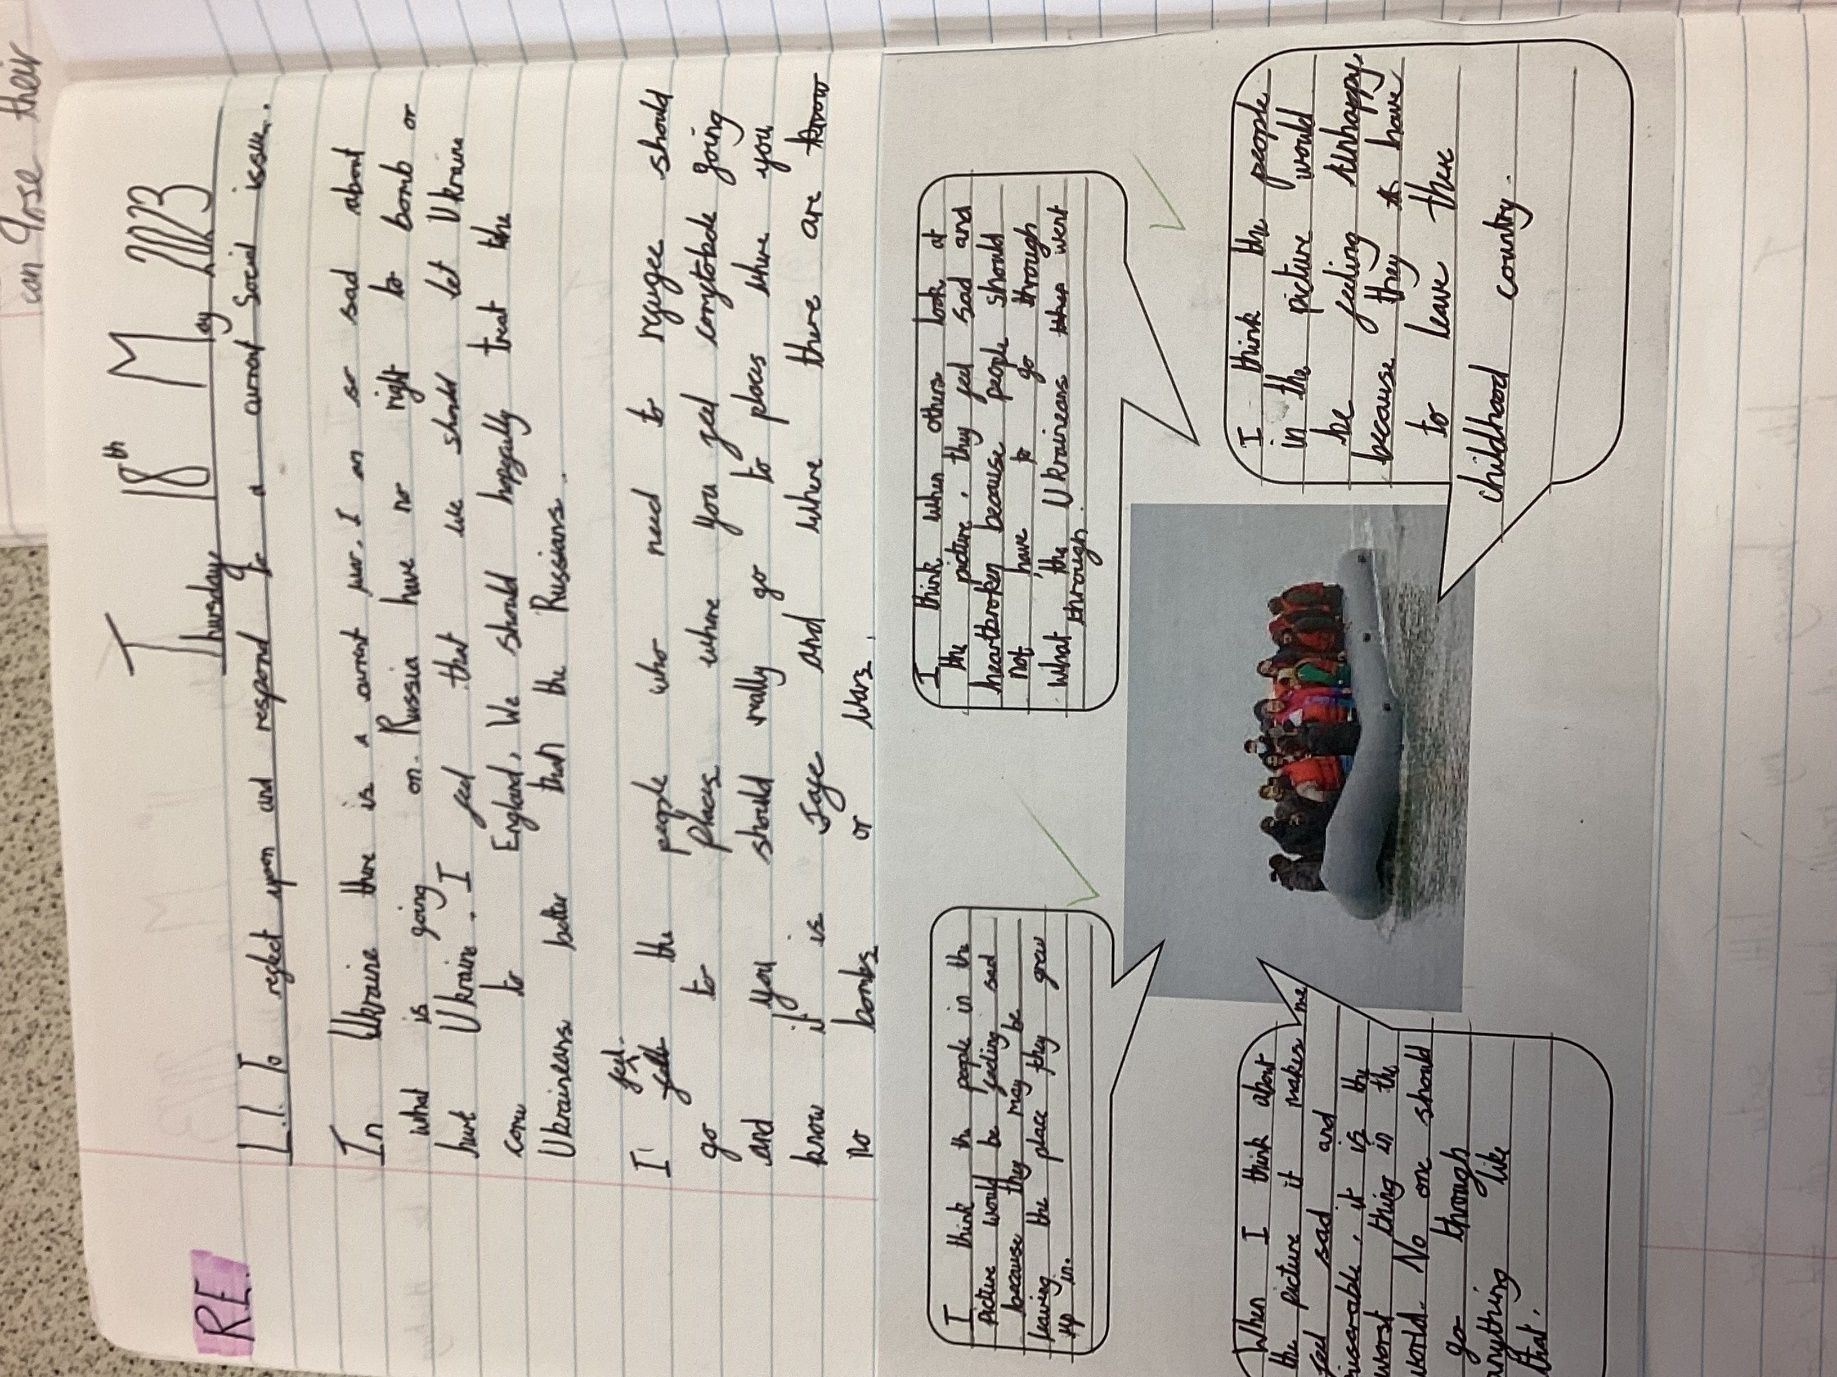 can Arse their
RE
Thursday 18th May 2023
L.I. To reflect upon and respond to a current social issue.
In Ukraine there is a current war. I am so sad about
what is going on. Russia have no right to bomb or
hurt Ukraine. I feel that we should let Ukraine
come to England. We should hopefully treat the
Ukraineans better than the Russians.
I feel the people who need to refugee should
go to places where you feel comftotable going
and you should really go to places where you
know it is safe and where there are know
no bombs or wars.
I think the people in the
picture would be feeling sad
because they may be
leaving the place they grew
up in.
I think when others look at
the picture, they feel sad and
heartbroken because people should
not have to go through
what the Ukraineans went
through.
When I think about
the picture it makes me
feel sad and
miserable, it is the
worst thing in the
world. No one should
go through
anything like
that.
I think the people
in the picture would
be feeling unhappy
because they have
to leave there
childhood country.